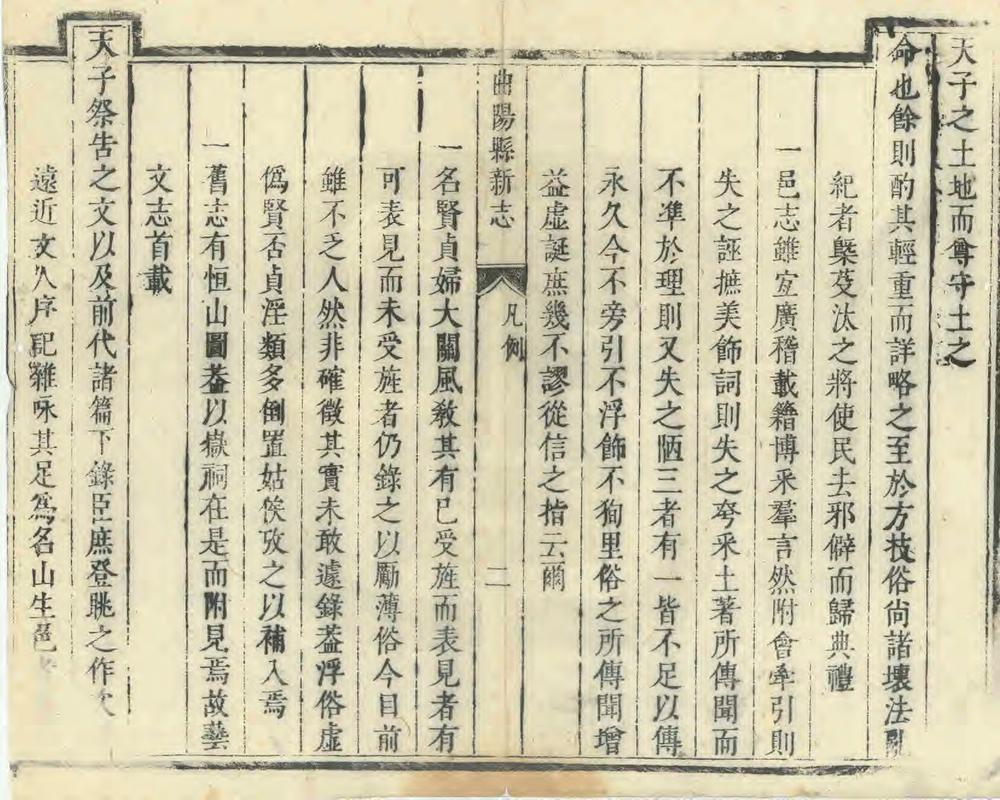 天子之土地而尊守土之
命也餘則酌其輕重而詳略之至於方技俗尙諸壞法亂
紀者槩芟汰之將使民去邪僻而歸典禮
一邑志雖宜廣稽載籍博釆羣言然附會牽引則
失之誣摭美飾詞則失之夸釆土著所傳聞而
不凖於理則又失之陋三者有一皆不足以傳
永久今不旁引不浮飾不狥里俗之所傳聞增
益虛誕庶幾不謬從信之指云爾
曲陽縣新志 凡例 二
一名賢貞婦大關風敎其有已受旌而表見者有
可表見而未受旌者仍錄之以勵薄俗今目前
雖不乏人然非確徵其實未敢遽錄葢浮俗虛
僞賢否貞淫類多倒置姑俟攷之以補入焉
一舊志有恒山圖葢以嶽祠在是而附見焉故藝
文志首載
天子祭告之文以及前代諸篇下錄臣庶登眺之作次
遠近文人序記雜咏其足爲名山生邑